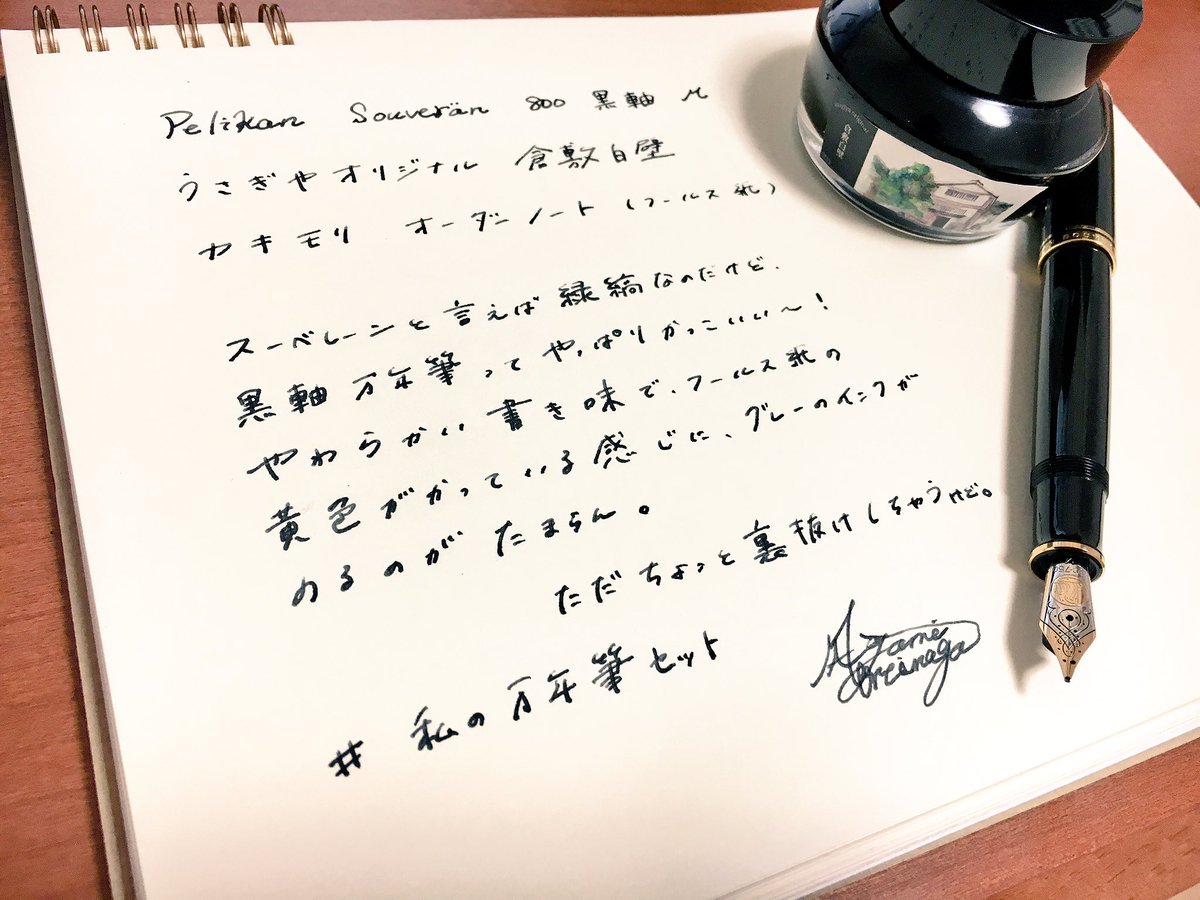 Pelikan Souverän 800 黒軸 M
うさぎやオリジナル 倉敷白壁
カキモリ オーダーノート（フールス紙）
スーベレーンと言えば緑縞なのだけど、
黒軸万年筆ってやっぱりかっこいい〜！
やわらかい書き味で、フールス紙の
黄色がかっている感じに、グレーのインクが
のるのがたまらん。
ただちょっと裏抜けしちゃうけど。
# 私の万年筆セット
倉敷白壁